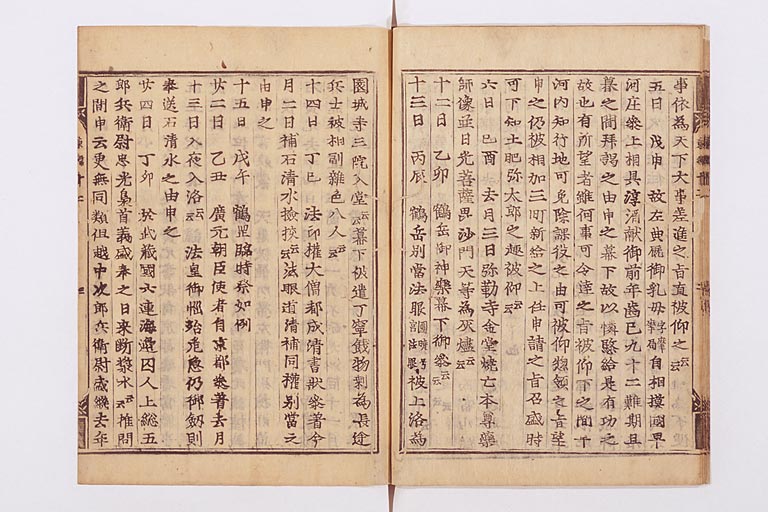 事依為天下大事差進之旨直被仰之云云
五日　戊申　故左典厩御乳母字摩々局自相摸國早
河庄參上相具淳酒献御前年齒已九十二難期且
暮之間拜謁之由申之幕下故以憐愍給是有功之
故也有所望者雖何事可令達之旨被仰下之間平
河内知行地可免除課役之由可被仰惣領之旨望
申之仍被相加三町新給之上任申請之旨召盛時
可下知土肥弥太郎之趣被仰云云
六日　己酉　去月三日弥勒寺金堂燒亡本尊藥
師像並日光菩薩毘沙門天等為灰燼云云
十二日　乙卯　鶴岳御神樂幕下御參云云
十三日　丙辰　鶴岳別當法眼圓曉号宮法眼被上洛為
園城寺三院入堂云云幕下被遣丁寧餞物剰為長途
兵士被相副雜色八人云云
十四日　丁巳　法印權大僧都成清書狀參著今
月二日補石清水撿挍云云法眼道清補同權別當之
由申之
十五日　戊午　鶴岳臨時祭如例
廿二日　乙丑　廣元朝臣使者自京都參著去月
十三日入夜入洛云云　法皇御惱殆危急仍御劔則
奉送石清水之由申之
廿四日　丁卯　於武蔵國六連海邊囚人上総五
郎兵衛尉忠光梟首義盛奉之日来断漿水云云推問
之間申云更無同類但越中次郎兵衛尉盛継去年